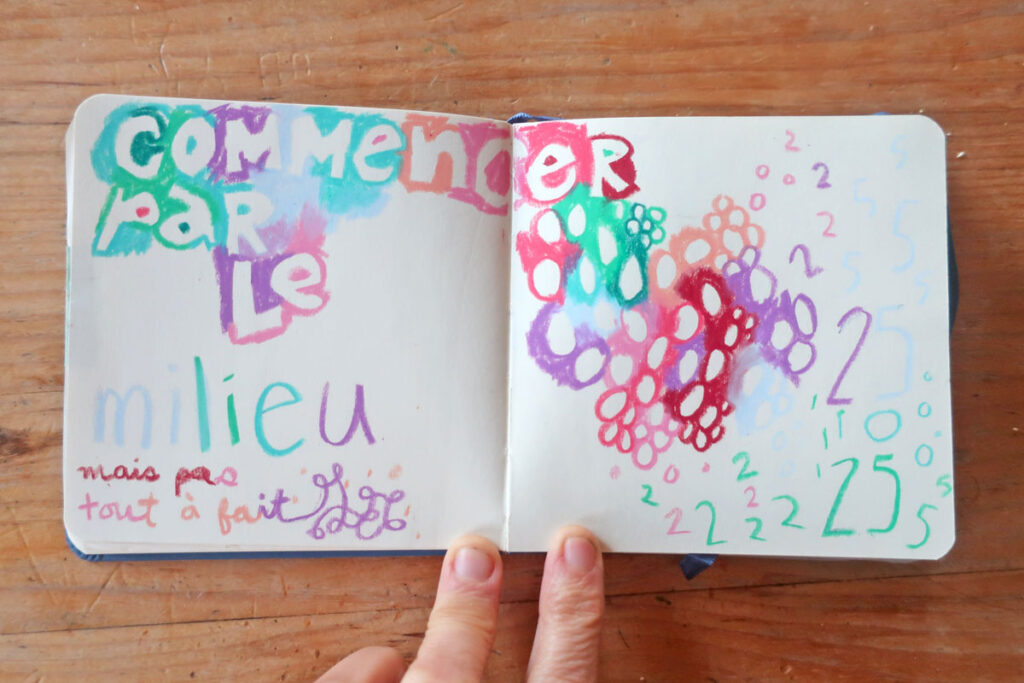 COMMeNCeR
PaR
Le
milieu
mais pas
tout à fait
2
2
2
2
25
0
25
2
2 2 2 2 2 5